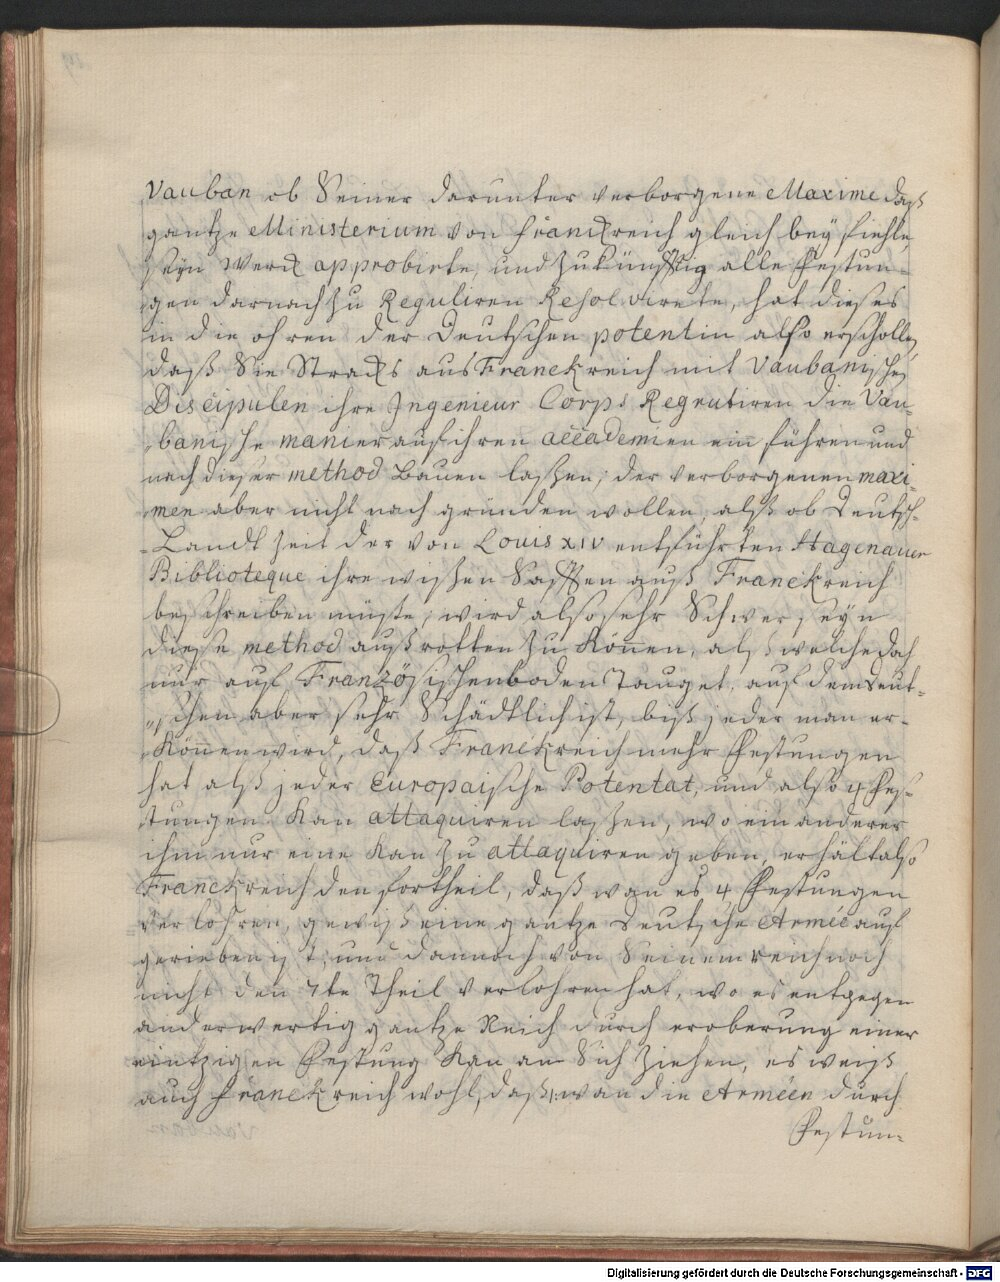 Vauban ob Seiner darunter verborgene Maxime daß
gantze Ministerium von franckreich gleich beyfiehle,
seyn Werck approbirte, und zukünfftig alle Festun-
gen darnach zu Reguliren Resolvirete, hat dieses
in die ohren der Deutschen potentin also erschollen,
daß Sie Stracks aus Franckreich mit Vaubanischen
Discipulen ihre Ingenieur Corps Regrutiren die Vau-
banische manier auf ihren accademien ein führen und
nach dieser method Bauen laßen, der verborgenen maxi-
men aber nicht nach gründen wollen, alß ob Deutsch-
Landt Zeit der von Louis XIV entführten Hagenauer
Biblioteque ihre wißen Safften auß Franckreich
beschreiben müste, wird also sehr Schwer seyn
diese method auß rotten zu Können, alß welche doch
nur auf Französischen boden Tauget, auf dem deut-
schen aber sehr Schädtlich ist, biß jeder man er-
Könen wird, daß Franckreich mehr Festungen
hat alß jeder Europaische Potentat, und also 4 Fes-
tungen Kan attaquiren laßen, wo ein anderer
ihm nur eine Kan zu attaquiren geben, erhält also
Franckreich den fortheil, daß wan es 4 Festungen
verlohren, gewiß eine gantze deutsche Armée auf
gerieben ist, und dannoch von Seinem reich noch
nicht den 7te Theil verlohren hat, wo es entgegen
anderwertig gantze Reich durch eroberung einer
eintzigen Festung Kan an Sich Ziehen, es weiß
auch franckreich wohl, daß wan die Arméen durch
Festun-
Digitalisierung gefördert durch die Deutsche Forschungsgemeinschaft - DFG